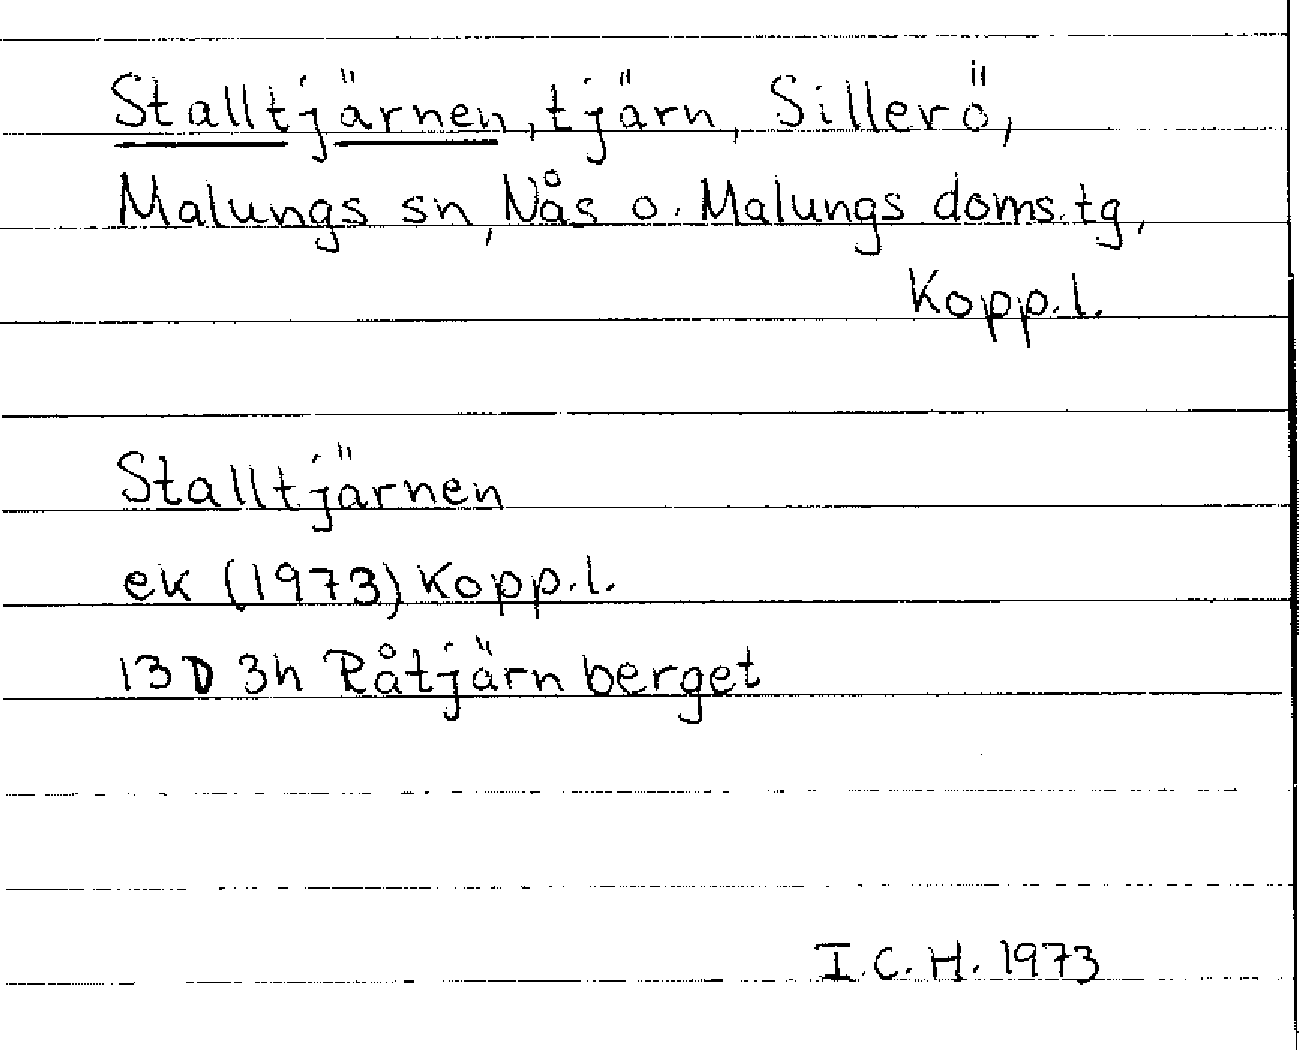 Stalltjärnen, tjärn, Sillerö,
Malungs sn, Nås o. Malungs doms.tg,
Kopp.l.
Stalltjärnen
ek (1973) Kopp.l.
13D 3h Råtjärnberget
I.C.H. 1973